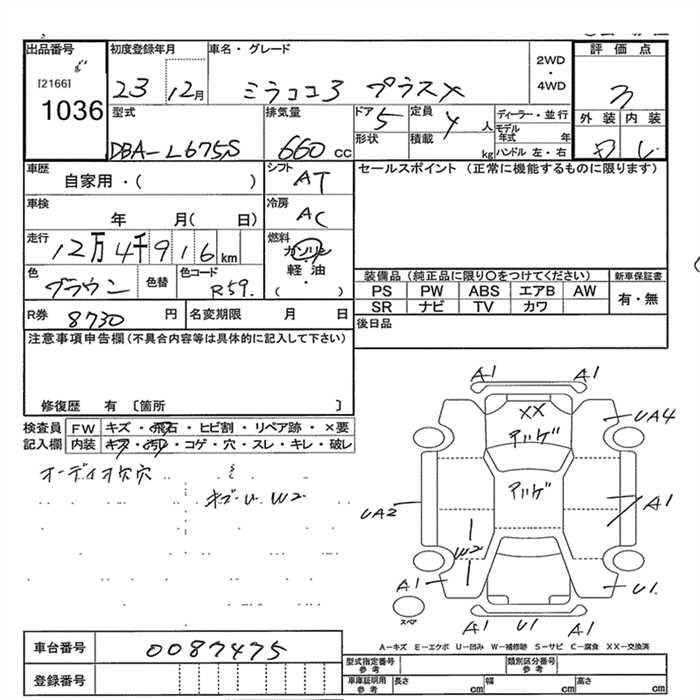 出品番号
[2166]
1036
初度登録年月
23 12月
車名・グレード
ミラココア プラスX
2WD
・
4WD
評価点
3
外装 内装
型式
DBA-L675S
排気量
660 CC
ドア 5
形状
定員 4 人
積載 kg
ディーラー・並行
モデル年式 年
ハンドル 左・右
車歴
自家用・( )
シフト
AT
車検
年 月( 日)
冷房
AC
走行
12万4千916km
燃料
ガソリン
・
軽油
・
( )
色
ブラウン
色替
色コード
R59.
R券 8730 円
名変期限 月 日
セールスポイント (正常に機能するものに限ります)
装備品(純正品に限り○をつけてください)
PS PW ABS エアB AW
SR ナビ TV カワ
新車保証書
有・無
後日品
注意事項申告欄(不具合内容等は具体的に記入して下さい)
修復歴 有 〔箇所 〕
検査員
記入欄
FW キズ・飛石・ヒビ割・リペア跡・×要
内装 キズ・汚レ・コゲ・穴・スレ・キレ・破レ
オーディオ欠穴
W2
A1 A1
XX
UA4
UA2
A1
W2
A1
U1
A1 U1 A1
スペア
A-キズ E-エクボ U-凹み W-補修跡 S-サビ C-腐食 XX-交換済
車台番号
0087475
登録番号
型式指定番号
参考
類別区分番号
参考
車庫証明用
参考
長さ cm
幅 cm
高さ cm